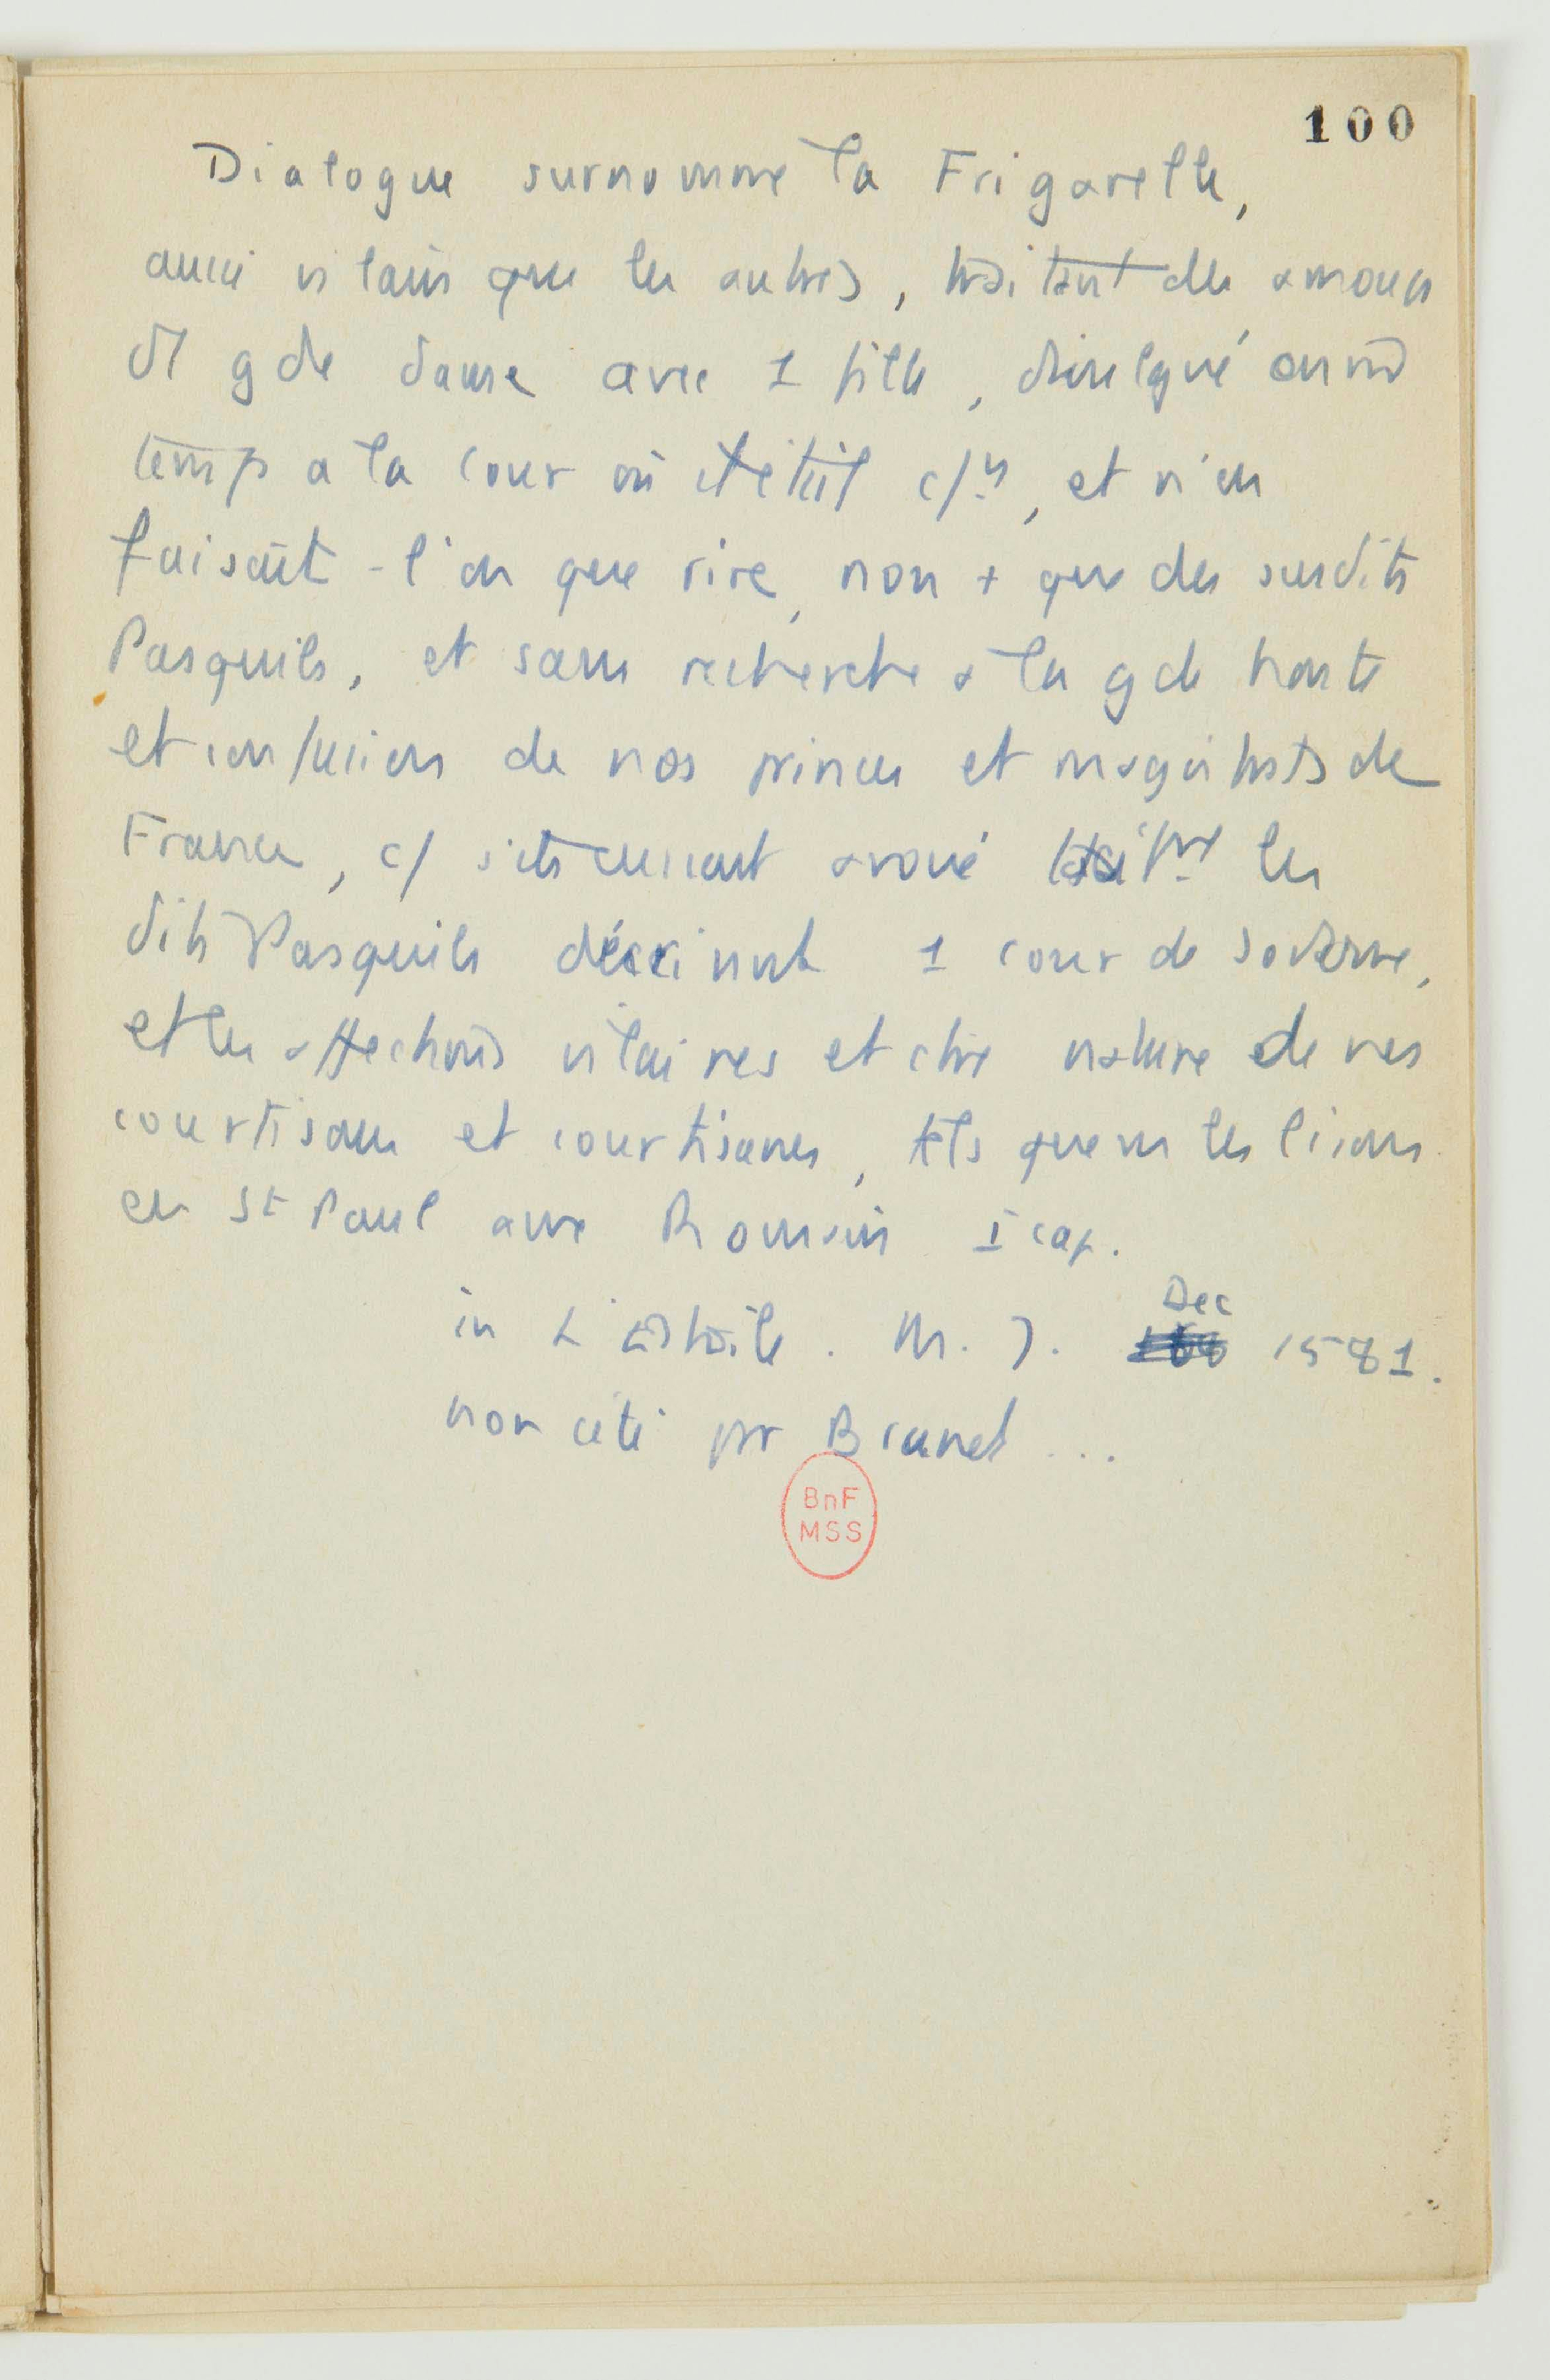 100
Dialogue surnommé la Frigarelle,
aussi vilain que les autres, traitant des amours
d'1 gde dame avec 1 fille, divulgué en md
temps a la cour où il était c/., et n'en
faisait-l'on que rire, non + que des susdits
Pasquils, et sans recherche à la gde honte
et confusion de nos princes et magistrats de
France, c/ s'ils eussent avoué les
dits Pasquils décrivant 1 cour de Sodome,
et les affections vilaines et ctre nature de nos
courtisans et courtisanes, tels que ns les lisons
en St Paul aux Romains I cap.
in L'Estoile. M. J. Dec 1581.
non cité par Brunet ...
BnF
MSS